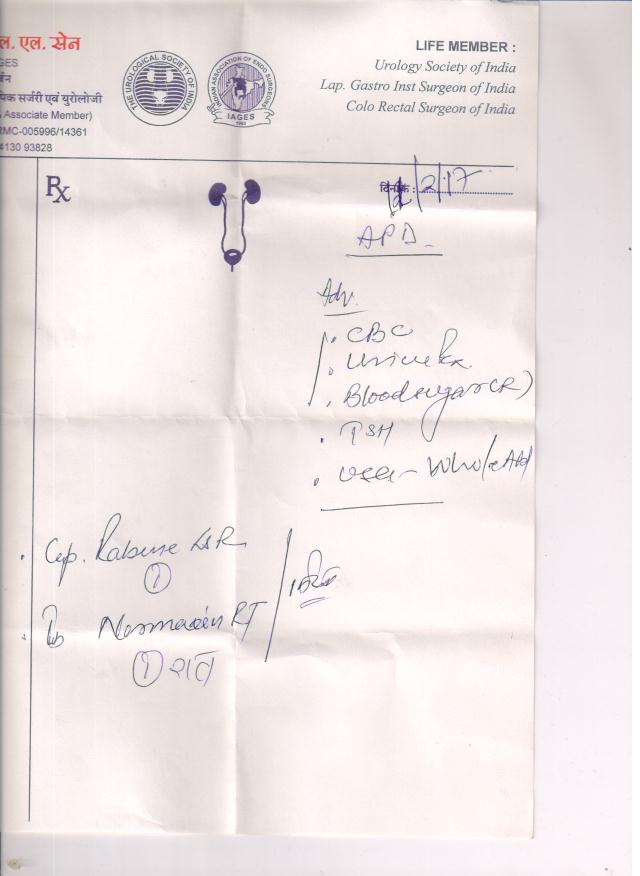 ल. एल. सेन
GES
र्जन
पिक सर्जरी एवं युरोलोजी
Associate Member)
RMC-005996/14361
4130 93828
THE UROLOGICAL SOCIETY OF INDIA
INDIAN ASSOCIATION OF ENDO SURGEONS
IAGES
1993
LIFE MEMBER :
Urology Society of India
Lap. Gastro Inst Surgeon of India
Colo Rectal Surgeon of India
Rx
दिनांक : /2/17
APD
Adv.
CBC
Urine
Blood sugar (R)
TSH
USG - Whole Abd
Cap. Rabium DSR
1
Tab Normaxin RT
1 रात